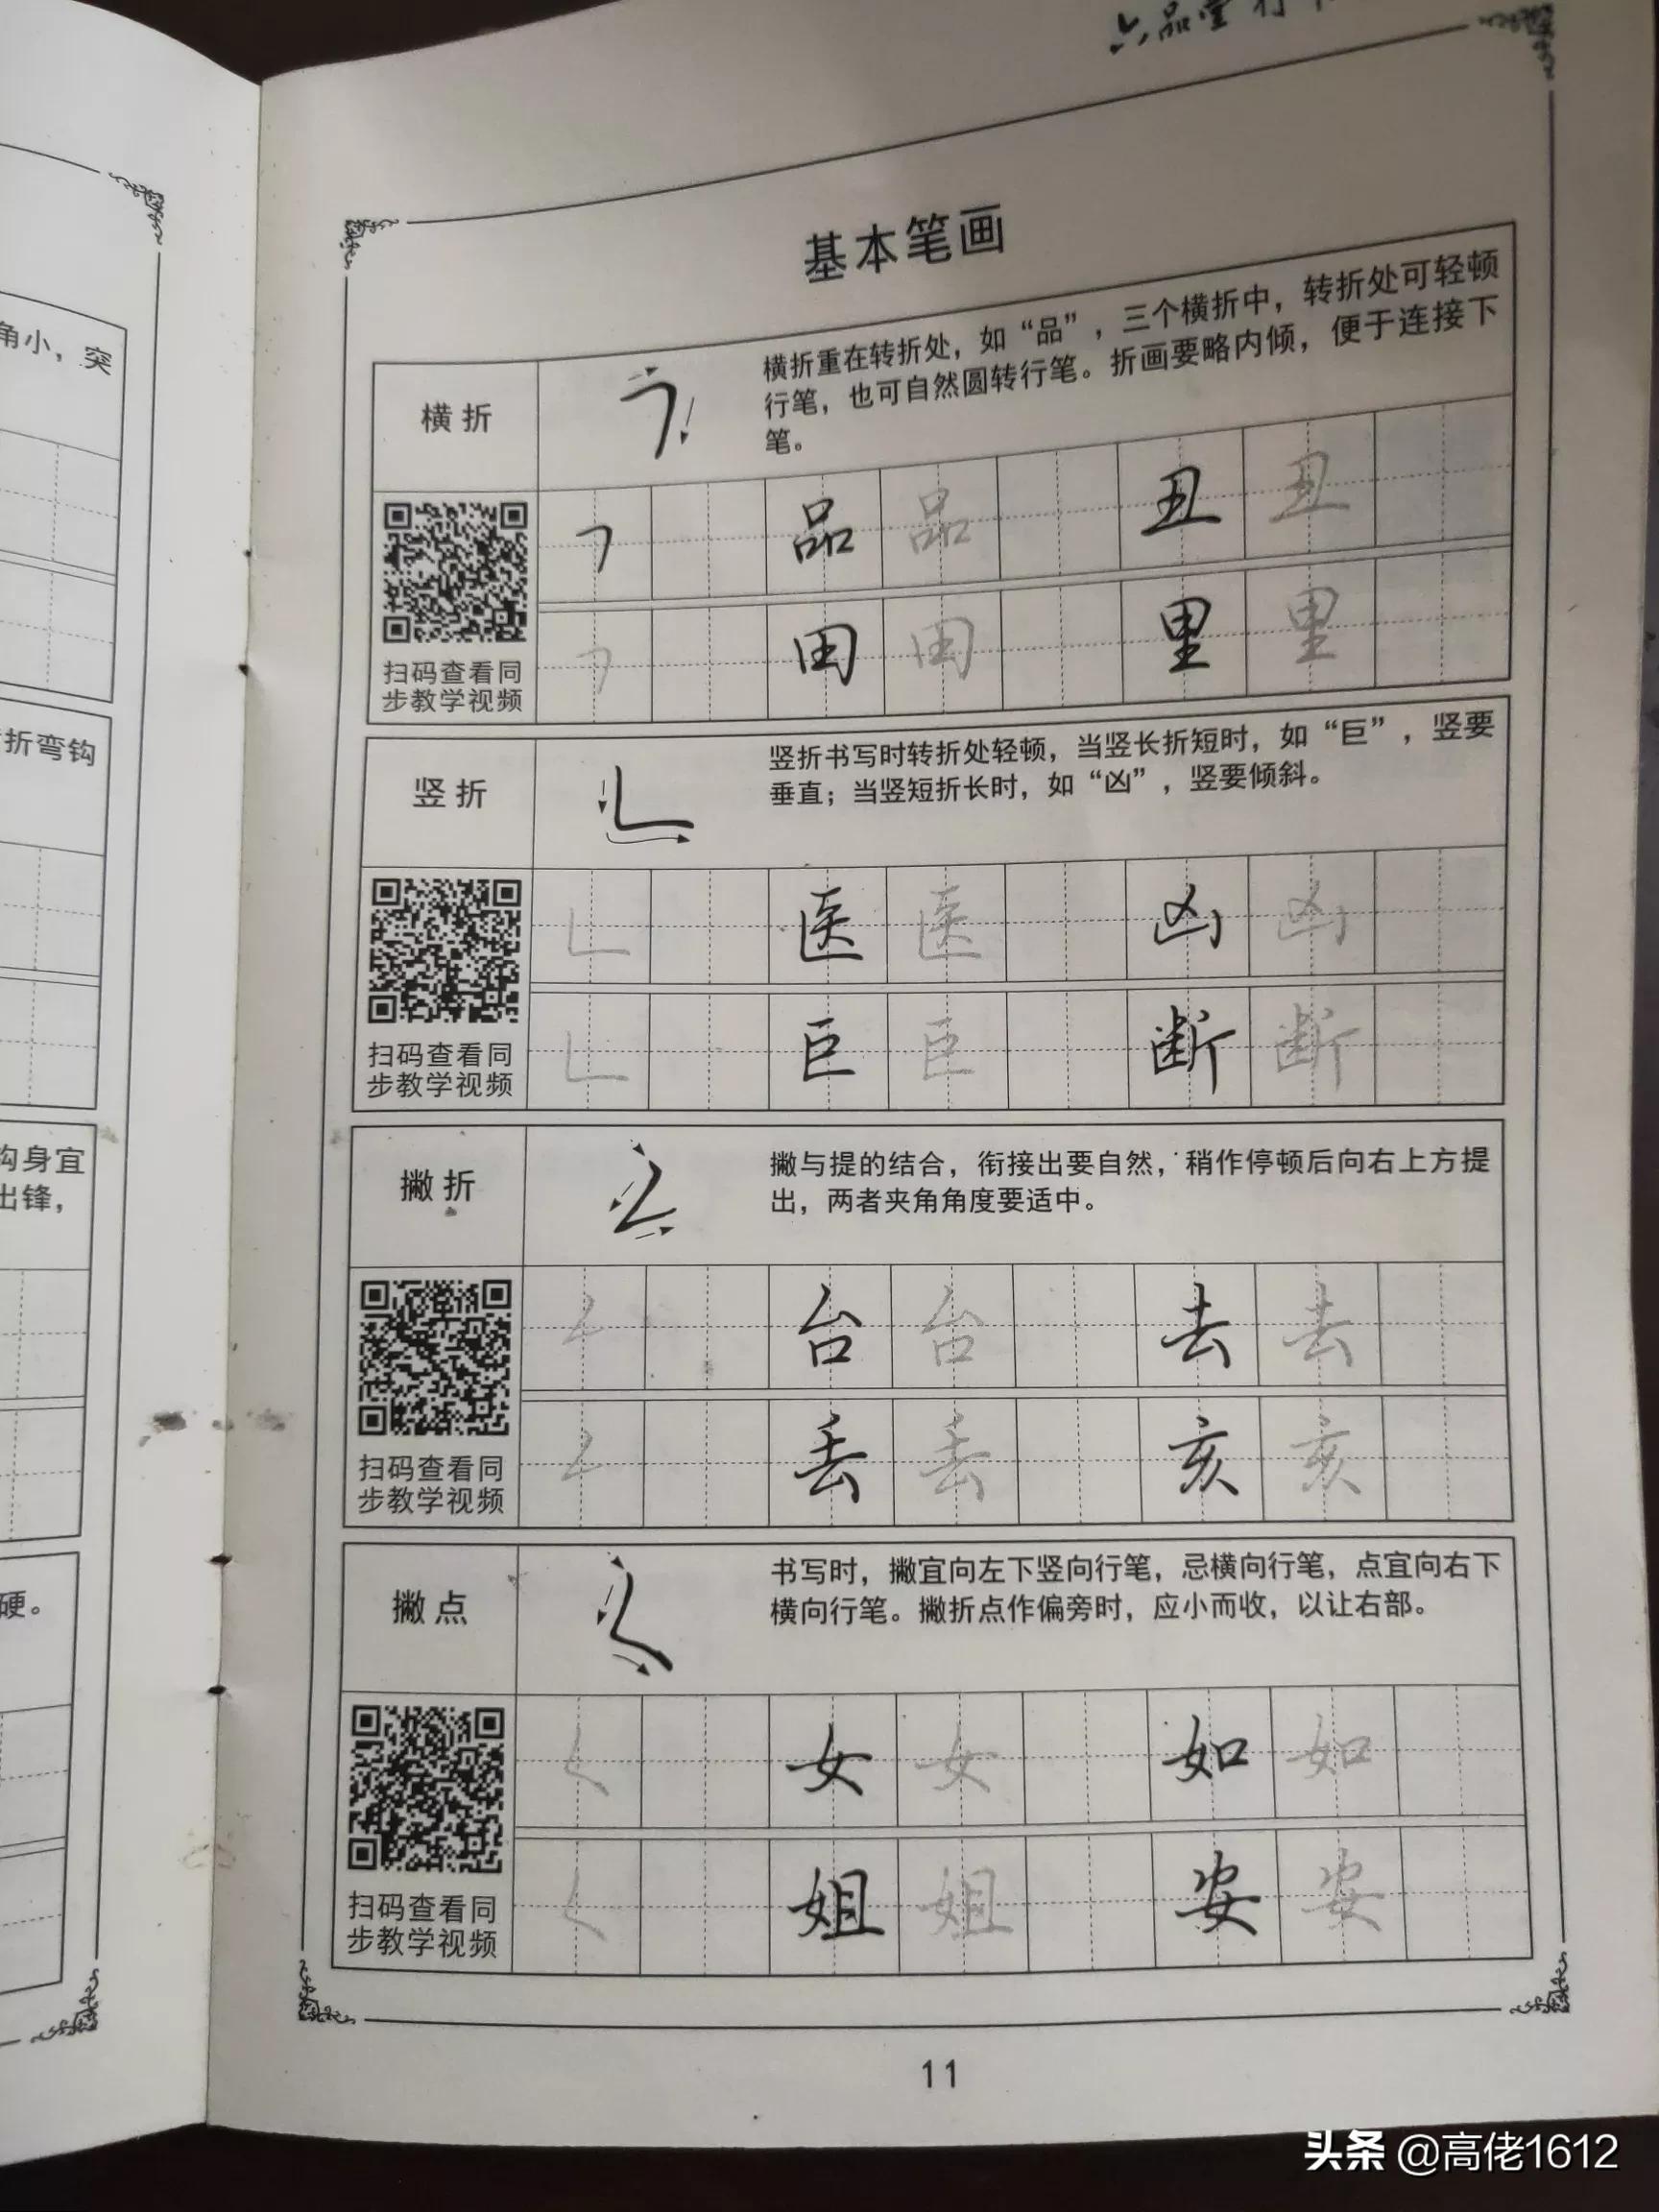 六品堂行
角小，突
折弯钩
沟身宜
出锋，
硬。
基本笔画
横折
横折重在转折处，如“品”，三个横折中，转折处可轻顿
行笔，也可自然圆转行笔。折画要略内倾，便于连接下
笔。
品 品 丑 丑
扫码查看同
步教学视频
田 田 里 里
竖折
竖折书写时转折处轻顿，当竖长折短时，如“巨”，竖要
垂直；当竖短折长时，如“凶”，竖要倾斜。
医 医 凶 凶
扫码查看同
步教学视频
巨 巨 断 断
撇折
撇与提的结合，衔接出要自然，稍作停顿后向右上方提
出，两者夹角角度要适中。
台 台 去 去
扫码查看同
步教学视频
丢 丢 亥 亥
撇点
书写时，撇宜向左下竖向行笔，忌横向行笔，点宜向右下
横向行笔。撇折点作偏旁时，应小而收，以让右部。
女 女 如 如
扫码查看同
步教学视频
姐 姐 安 安
11
头条 @高佬1612